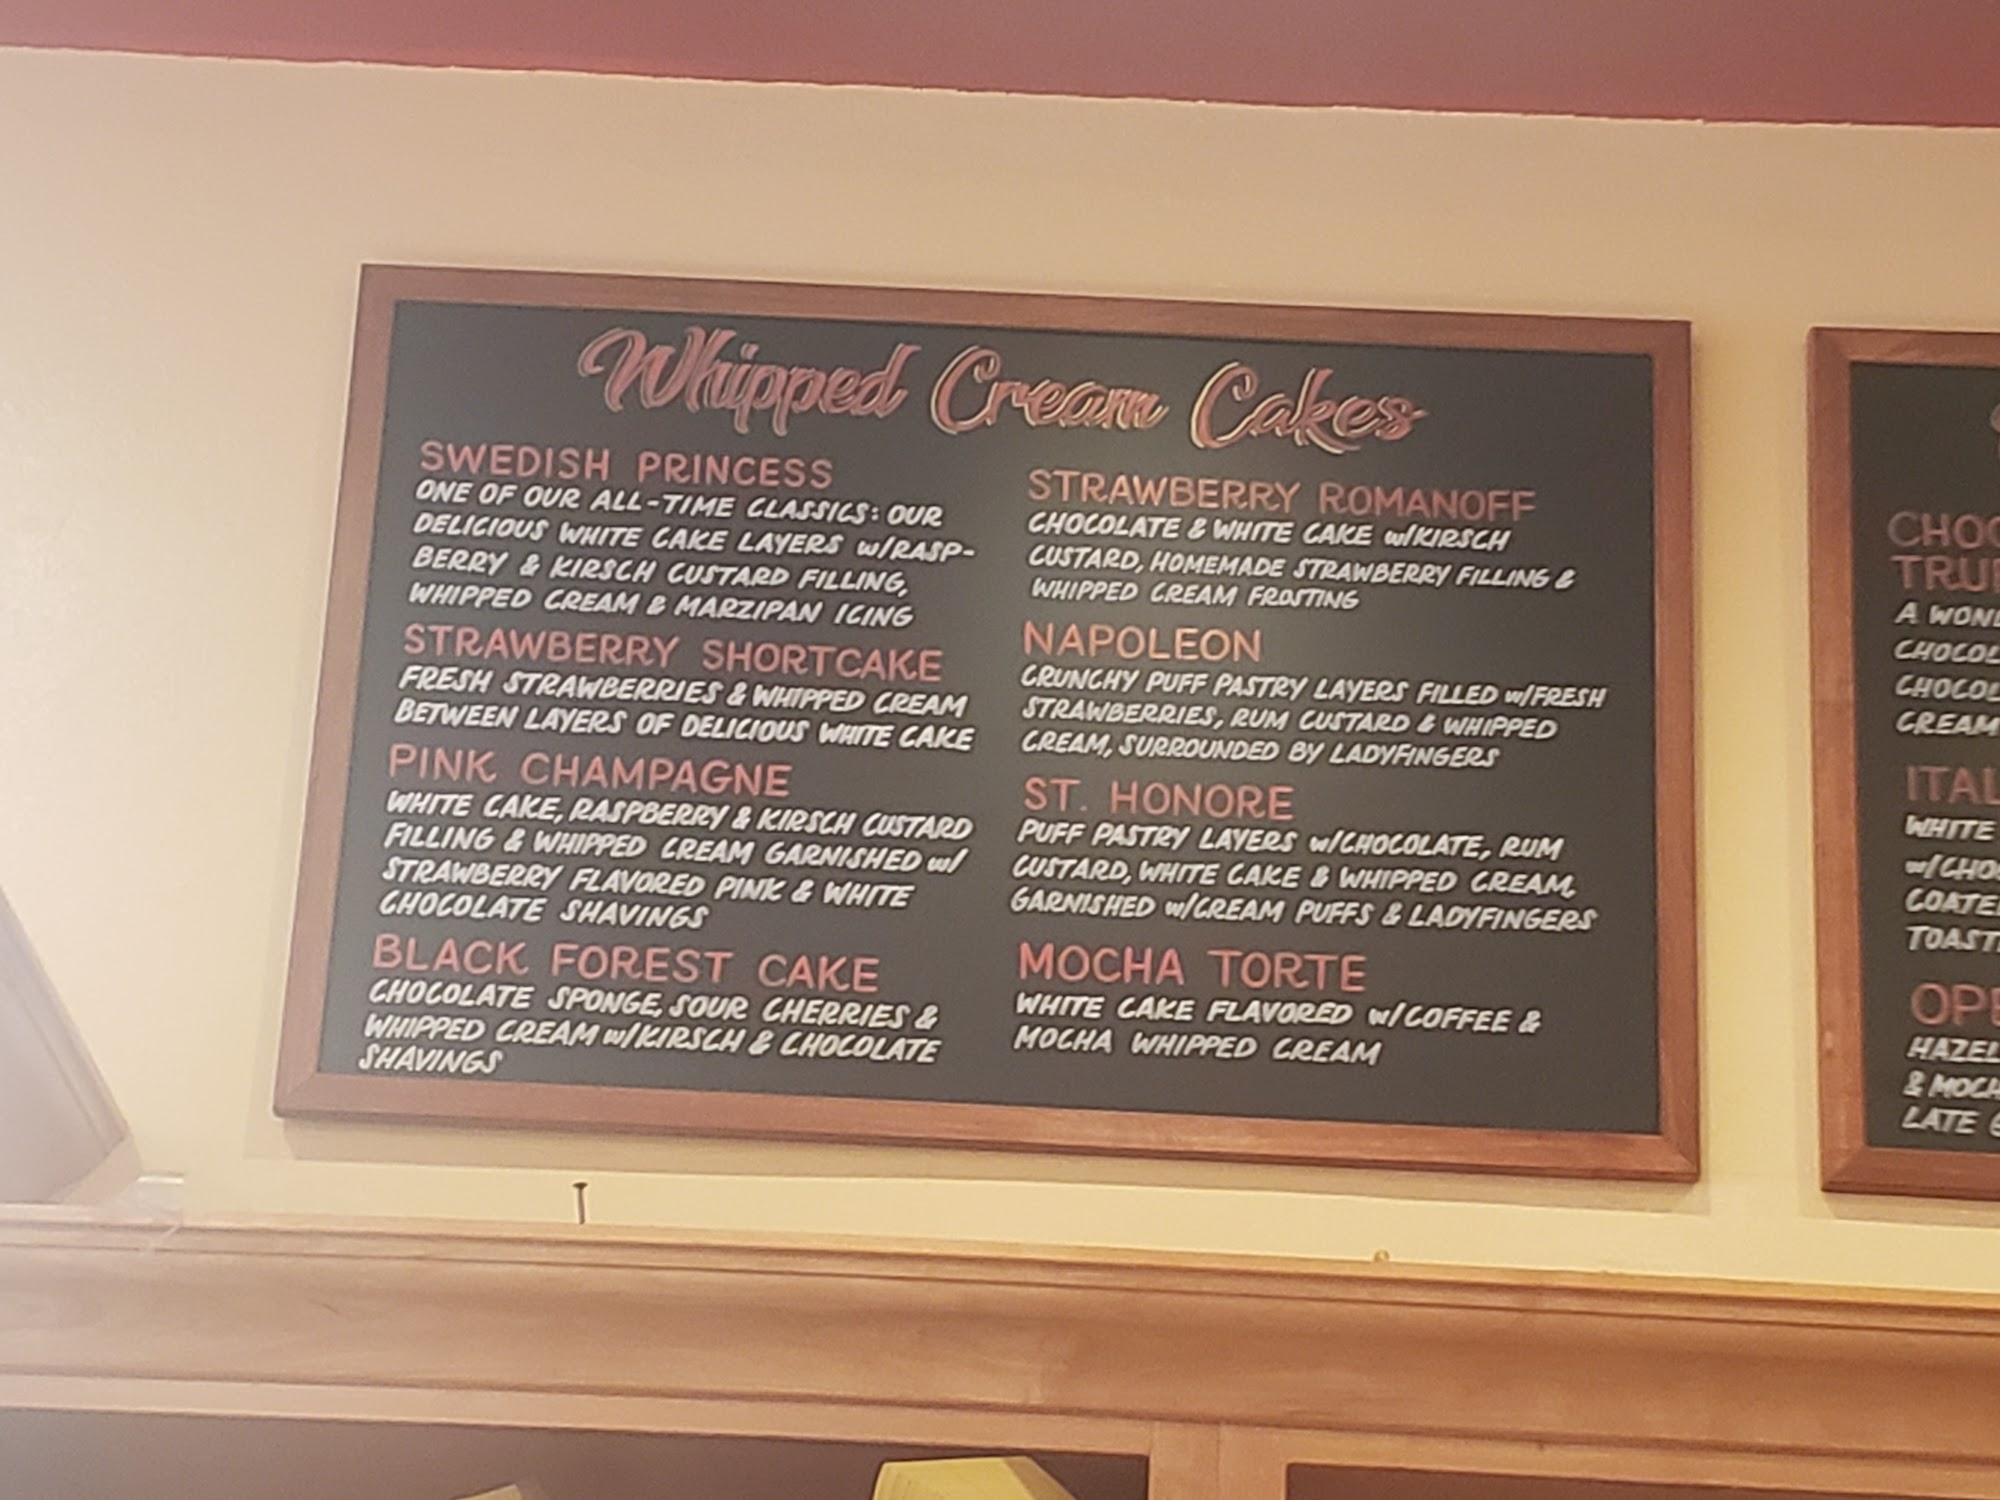 Whipped Cream Cakes
SWEDISH PRINCESS
ONE OF OUR ALL-TIME CLASSICS: OUR
DELICIOUS WHITE CAKE LAYERS w/RASP-
BERRY & KIRSCH CUSTARD FILLING,
WHIPPED CREAM & MARZIPAN ICING
STRAWBERRY SHORTCAKE
FRESH STRAWBERRIES & WHIPPED CREAM
BETWEEN LAYERS OF DELICIOUS WHITE CAKE
PINK CHAMPAGNE
WHITE CAKE, RASPBERRY & KIRSCH CUSTARD
FILLING & WHIPPED CREAM GARNISHED w/
STRAWBERRY FLAVORED PINK & WHITE
CHOCOLATE SHAVINGS
BLACK FOREST CAKE
CHOCOLATE SPONGE, SOUR CHERRIES &
WHIPPED CREAM w/KIRSCH & CHOCOLATE
SHAVINGS
STRAWBERRY ROMANOFF
CHOCOLATE & WHITE CAKE w/KIRSCH
CUSTARD, HOMEMADE STRAWBERRY FILLING &
WHIPPED CREAM FROSTING
NAPOLEON
CRUNCHY PUFF PASTRY LAYERS FILLED w/FRESH
STRAWBERRIES, RUM CUSTARD & WHIPPED
CREAM, SURROUNDED BY LADYFINGERS
ST. HONORE
PUFF PASTRY LAYERS w/CHOCOLATE, RUM
CUSTARD, WHITE CAKE & WHIPPED CREAM,
GARNISHED w/CREAM PUFFS & LADYFINGERS
MOCHA TORTE
WHITE CAKE FLAVORED w/COFFEE &
MOCHA WHIPPED CREAM
A
CREAM
WHITE
LATE